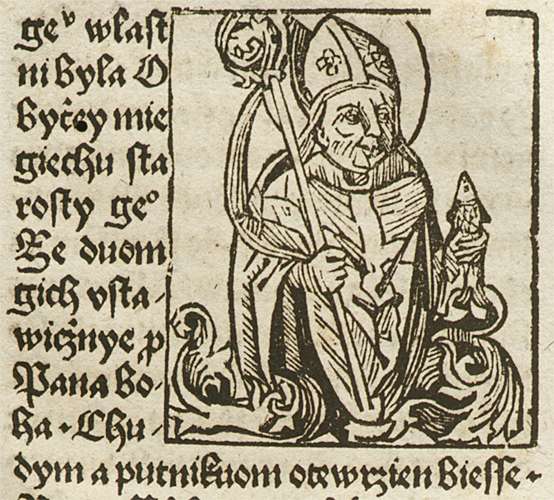 geᵛ wlast
ni byla O
byčey mie
giechu sta
rosty geᵒ
Ze duom
gich vsta⸗
wičznye p
Pana bo⸗
ha. Chu⸗
dym a putnikuom otewrzien biesse.